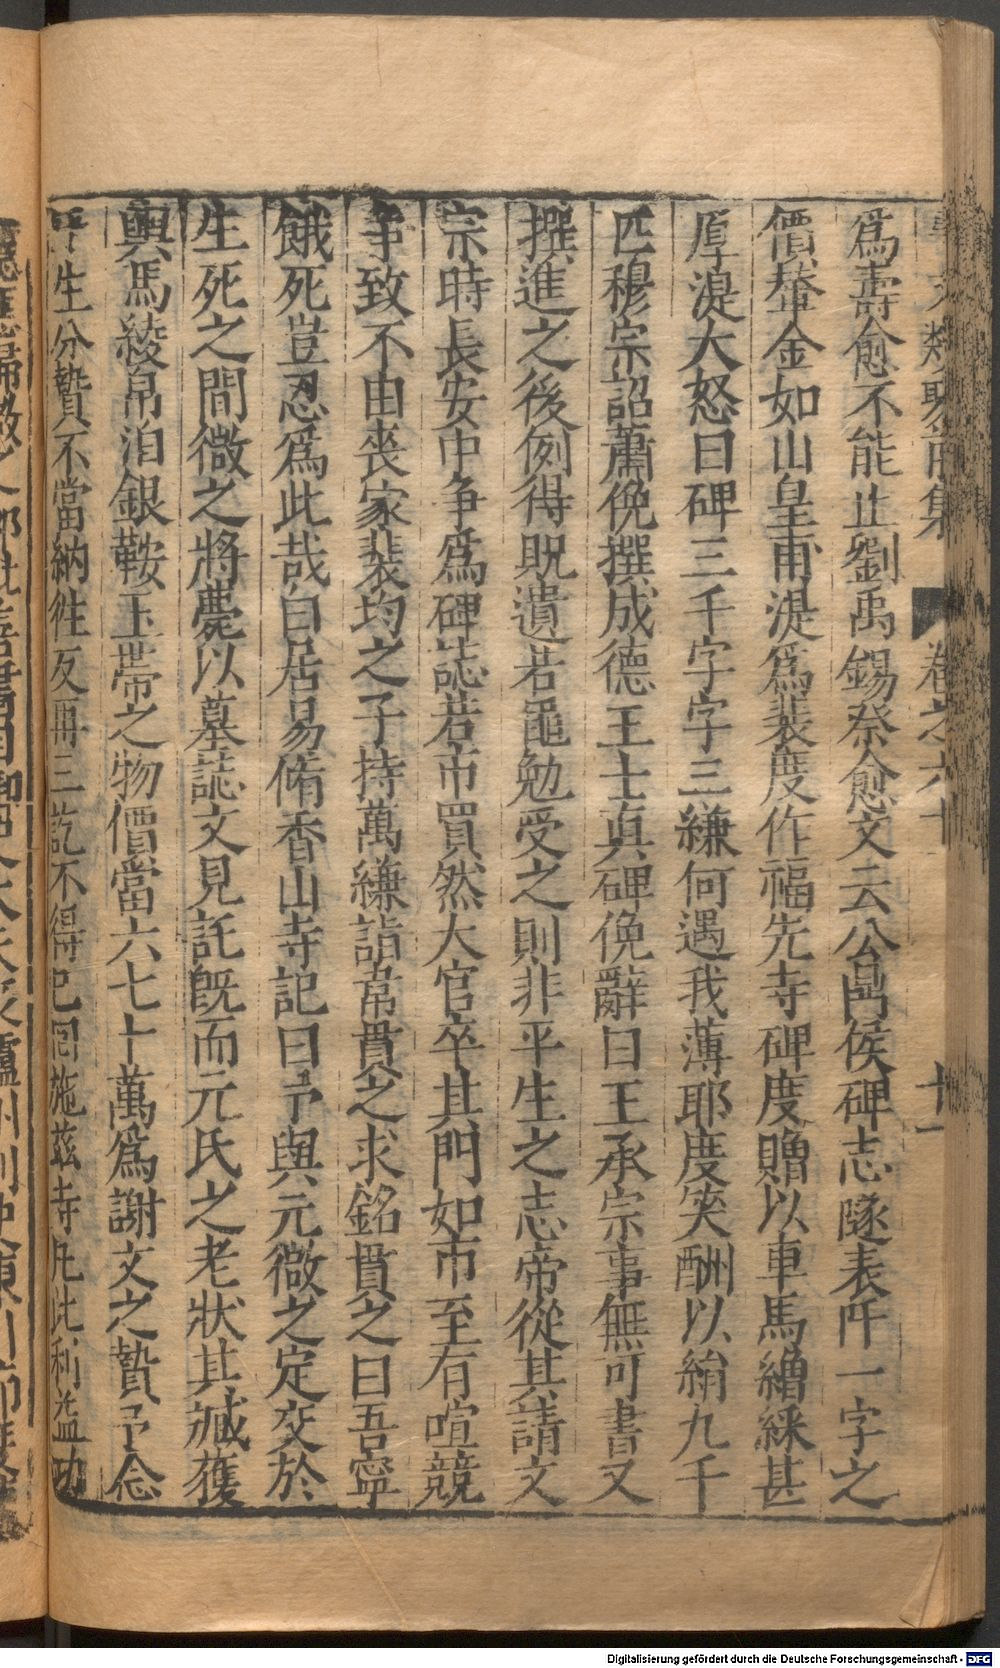 事文類聚前集 卷之六十 十一
爲壽愈不能止劉禹錫祭愈文云公鼎侯碑志隧表阡一字之
價輦金如山皇甫湜爲裴度作福先寺碑度贈以車馬繒綵甚
厚湜大怒曰碑三千字字三縑何遇我薄耶度笑酬以絹九千
匹穆宗詔蕭俛撰成德王士眞碑俛辭曰王承宗事無可書又
撰進之後例得貺遺若黽勉受之則非平生之志帝從其請文
宗時長安中争爲碑誌若市買然大官卒其門如市至有喧競
争致不由喪家裴均之子持萬縑詣韋貫之求銘貫之曰吾寧
餓死豈忍爲此哉白居易脩香山寺記曰予與元微之定交於
生死之間微之將薨以墓誌文見託旣而元氏之老狀其臧獲
輿馬綾帛洎銀鞍玉帶之物價當六七十萬爲謝文之贄予念
平生分贄不當納往反再三訖不得已囘施茲寺凡此利益功
Digitalisierung gefördert durch die Deutsche Forschungsgemeinschaft - DFG